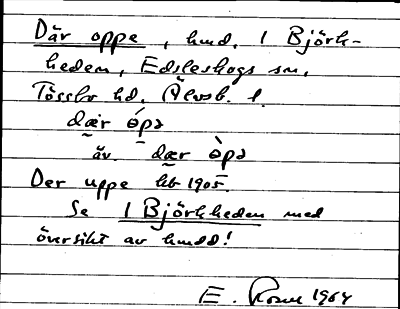 Där oppe, hmd. 1 Björk-
heden, Edsleskogs sn,
Tössbo hd. Älvsb. l.
dær ópə
äv. dær òpə
Der uppe hb 1905.
Se 1 Björkheden med
översikt av hmdd!
E. Rosell 1964